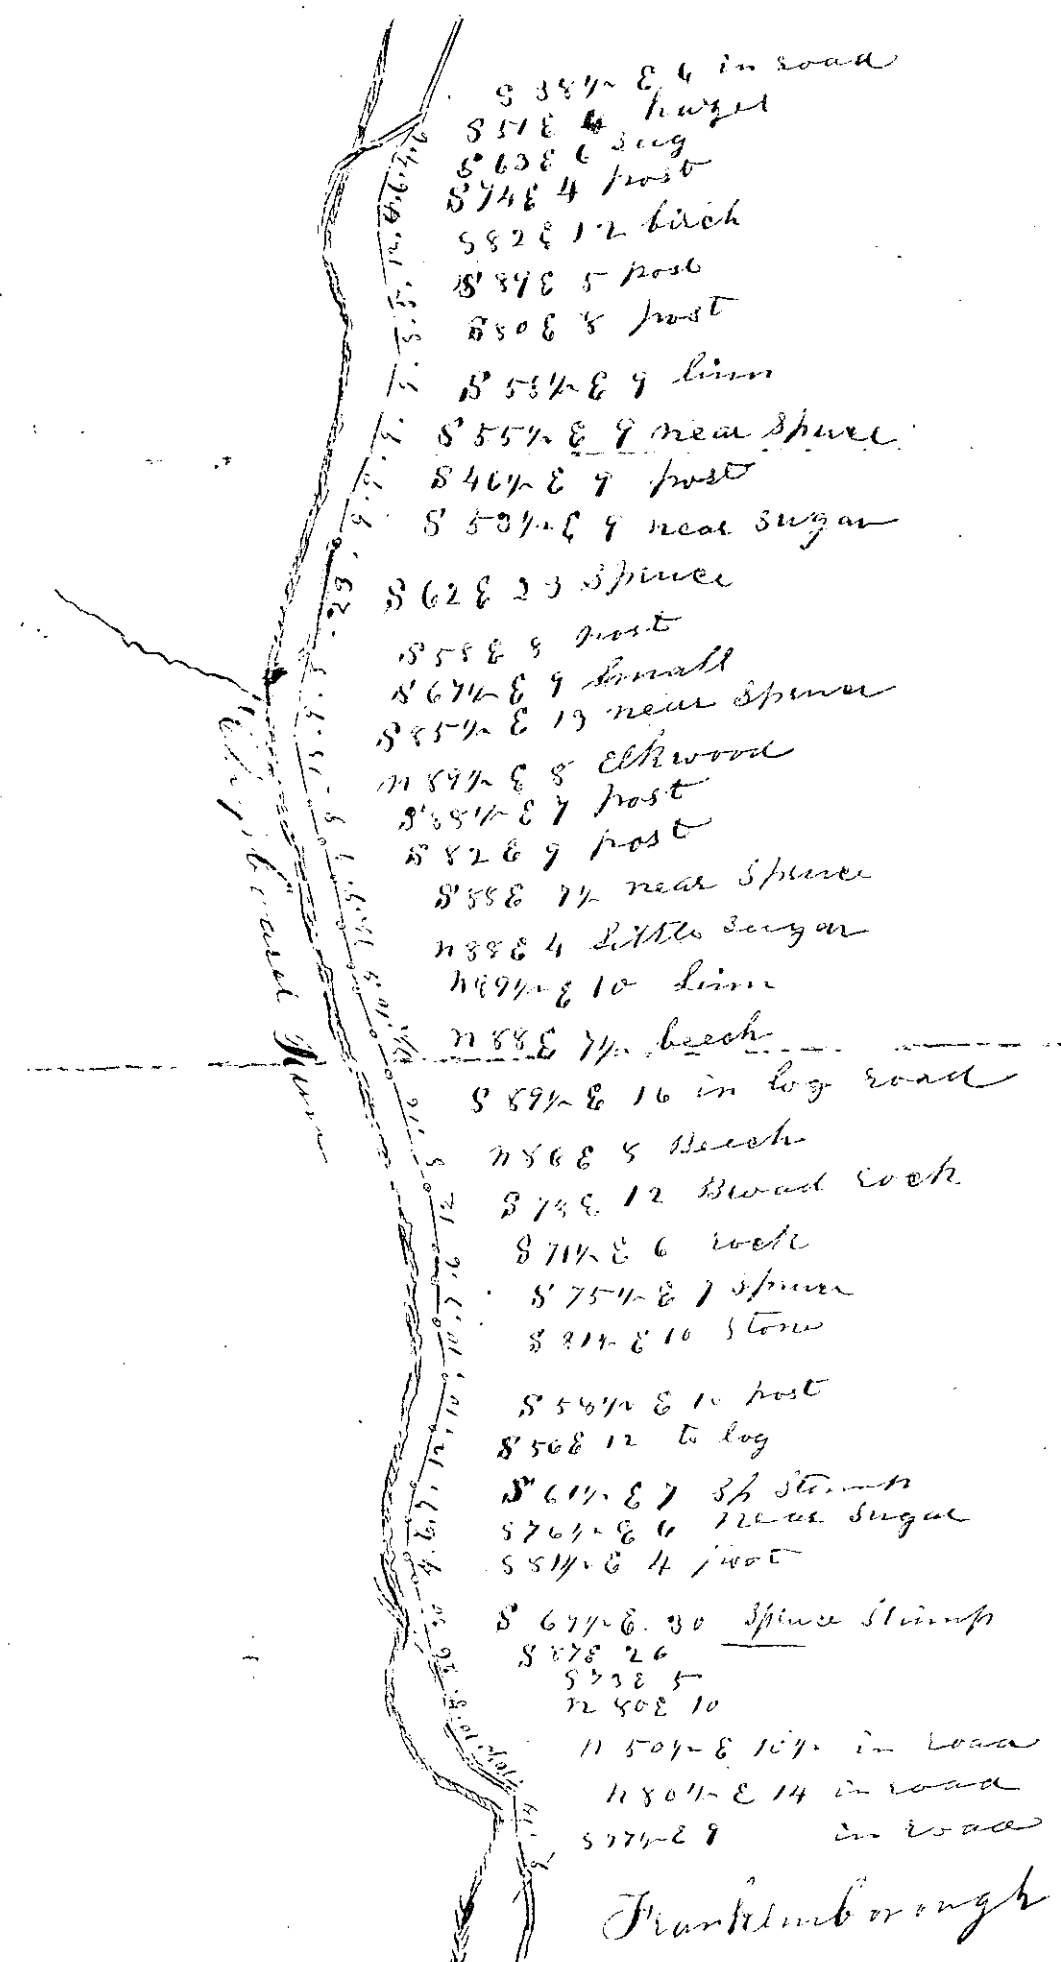 S 38½ E 6 in road
S 51 E 4 hazel
S 63 E 6 sug
S 74 E 4 post
S 82 E 12 birch
S 89 E 5 post
S 80 E 8 post
E 9 linn
S 55½ E 9 near Spruce
S 46½ E 9 post
S 53½ E 9 near sugar
S 62 E 23 Spruce
S 58 E 8 post
S 67½ E 9 Small
S 85½ E 13 near Spruce
N 89½ E 8 Elkwood
S 88½ E 7 post
S 82 E 9 post
S 88 E 7½ near Spruce
N 88 E 4 Little Sugar
N 89½ E 10 Linn
N 88 E 7½ beech
S 89½ E 16 in log road
N 86 E 8 Beech
S 78 E 12 Broad rock
S 71½ E 6 rock
S 75½ E 7 Spruce
E 10 Stone
S 58½ E 10 post
S 56 E 12 to log
S 61½ E 7 Sp Stump
S 76½ E 6 near Sugar
S 81½ E 4 post
S 67½ E 30 Spruce Stump
S 87 E 26
S 73 E 5
N 80 E 10
N 50½ E 10½ in road
N 80½ E 14 in road
S 77½ E 9 in road
Run
Franklinborough